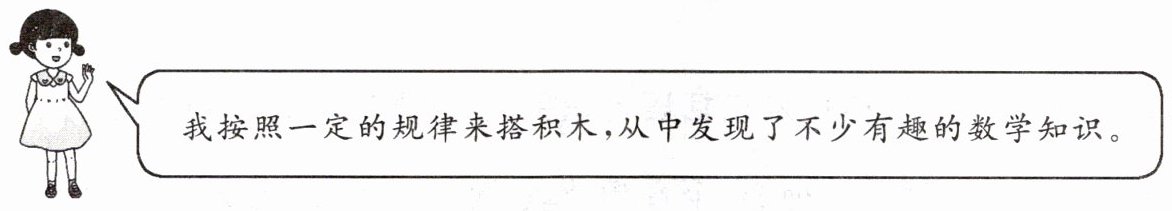 我按照一定的规律来搭积木,从中发现了不少有趣的数学知识。